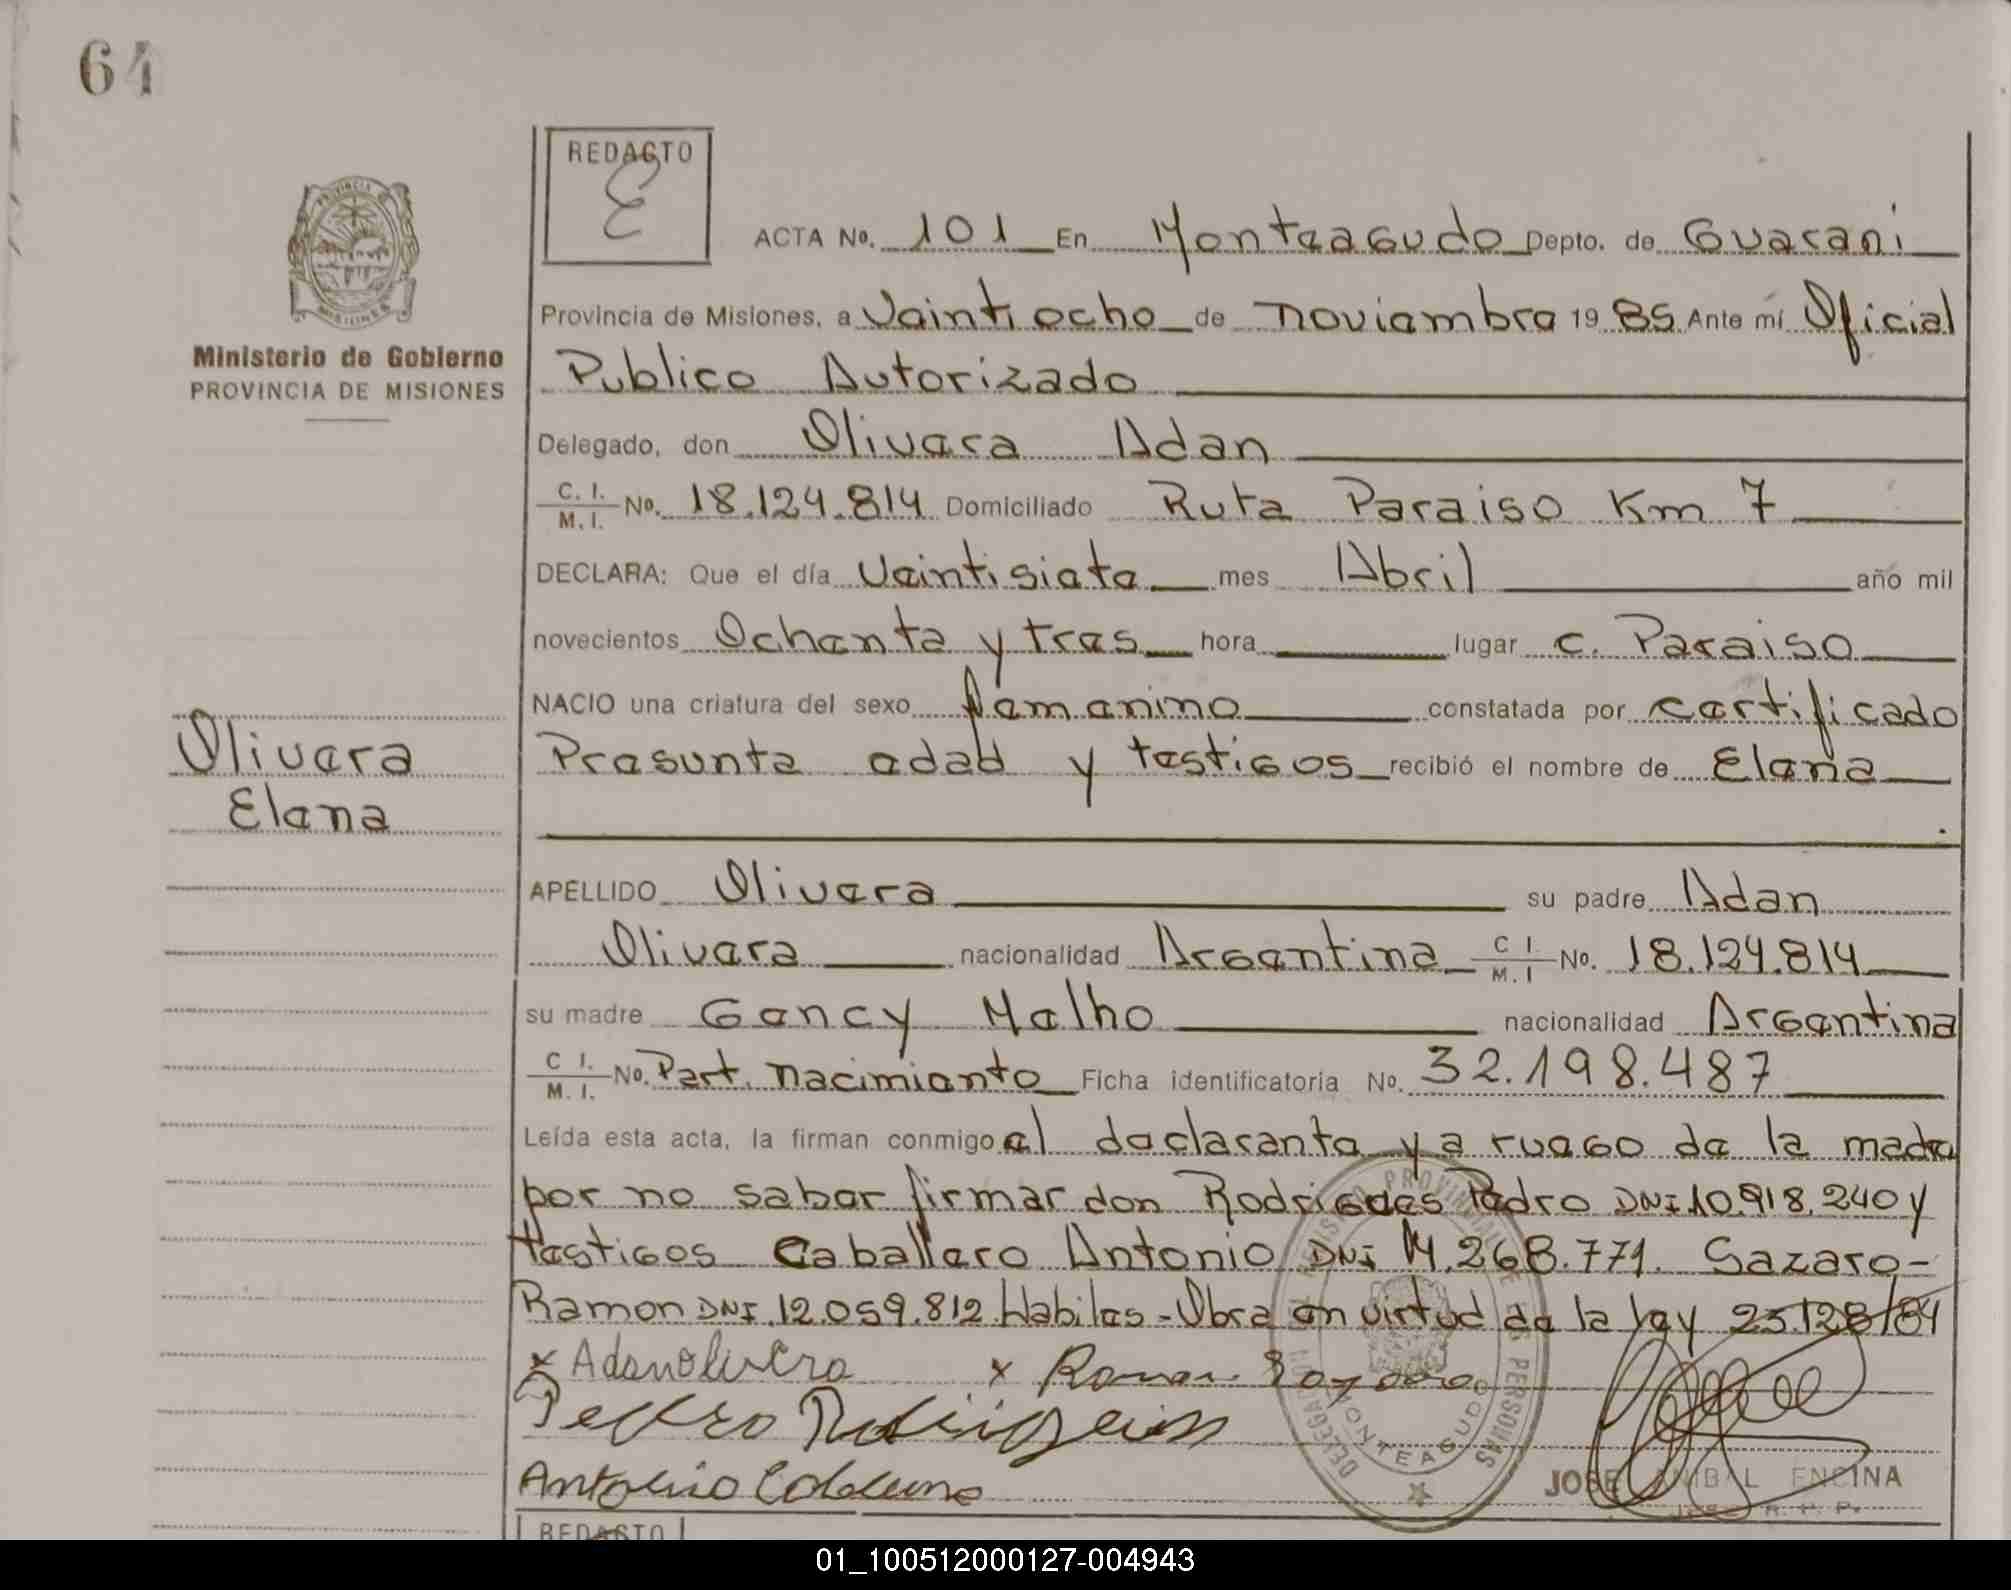 64
REDACTO
E
ACTA No. 101 En Monteagudo Depto. de Guarani
Provincia de Misiones, a Veinti ocho de noviembre 1985 Ante mí Oficial
Publico Autorizado
Ministerio de Gobierno
PROVINCIA DE MISIONES
Delegado, don Olivera Adan
C. I. M. I. No. 18.124.814 Domiciliado Ruta Paraiso Km 7
DECLARA: Que el día Veinti siete mes Abril año mil
novecientos Ochenta y tres hora lugar C. Paraiso
NACIO una criatura del sexo femenino constatada por certificado
Presunta edad y testigos recibió el nombre de Elena
Olivera
Elena
APELLIDO Olivera su padre Adan
Olivera nacionalidad Argentina C I. M. I No. 18.124.814
su madre Gency Melho nacionalidad Argentina
C I. M. I. No. Part. nacimiento Ficha identificatoria No. 32.198.487
Leída esta acta, la firman conmigo el declarante y a ruego de la madre
por no saber firmar don Rodrigues Pedro DNI 10.918.240 y
testigos Caballero Antonio DNI M.268.771. Sazaro-
Ramon DNI.12.059.812 Habiles-Obra en virtud de la ley 23.128/84
x Adan Olivera x Ramon
Pedro Rodrigues
Antonio
PROVINCIAL DE PERSONAS
MONTEAGUDO
JOSE ANIBAL ENCINA
REDACTO
01_100512000127-004943